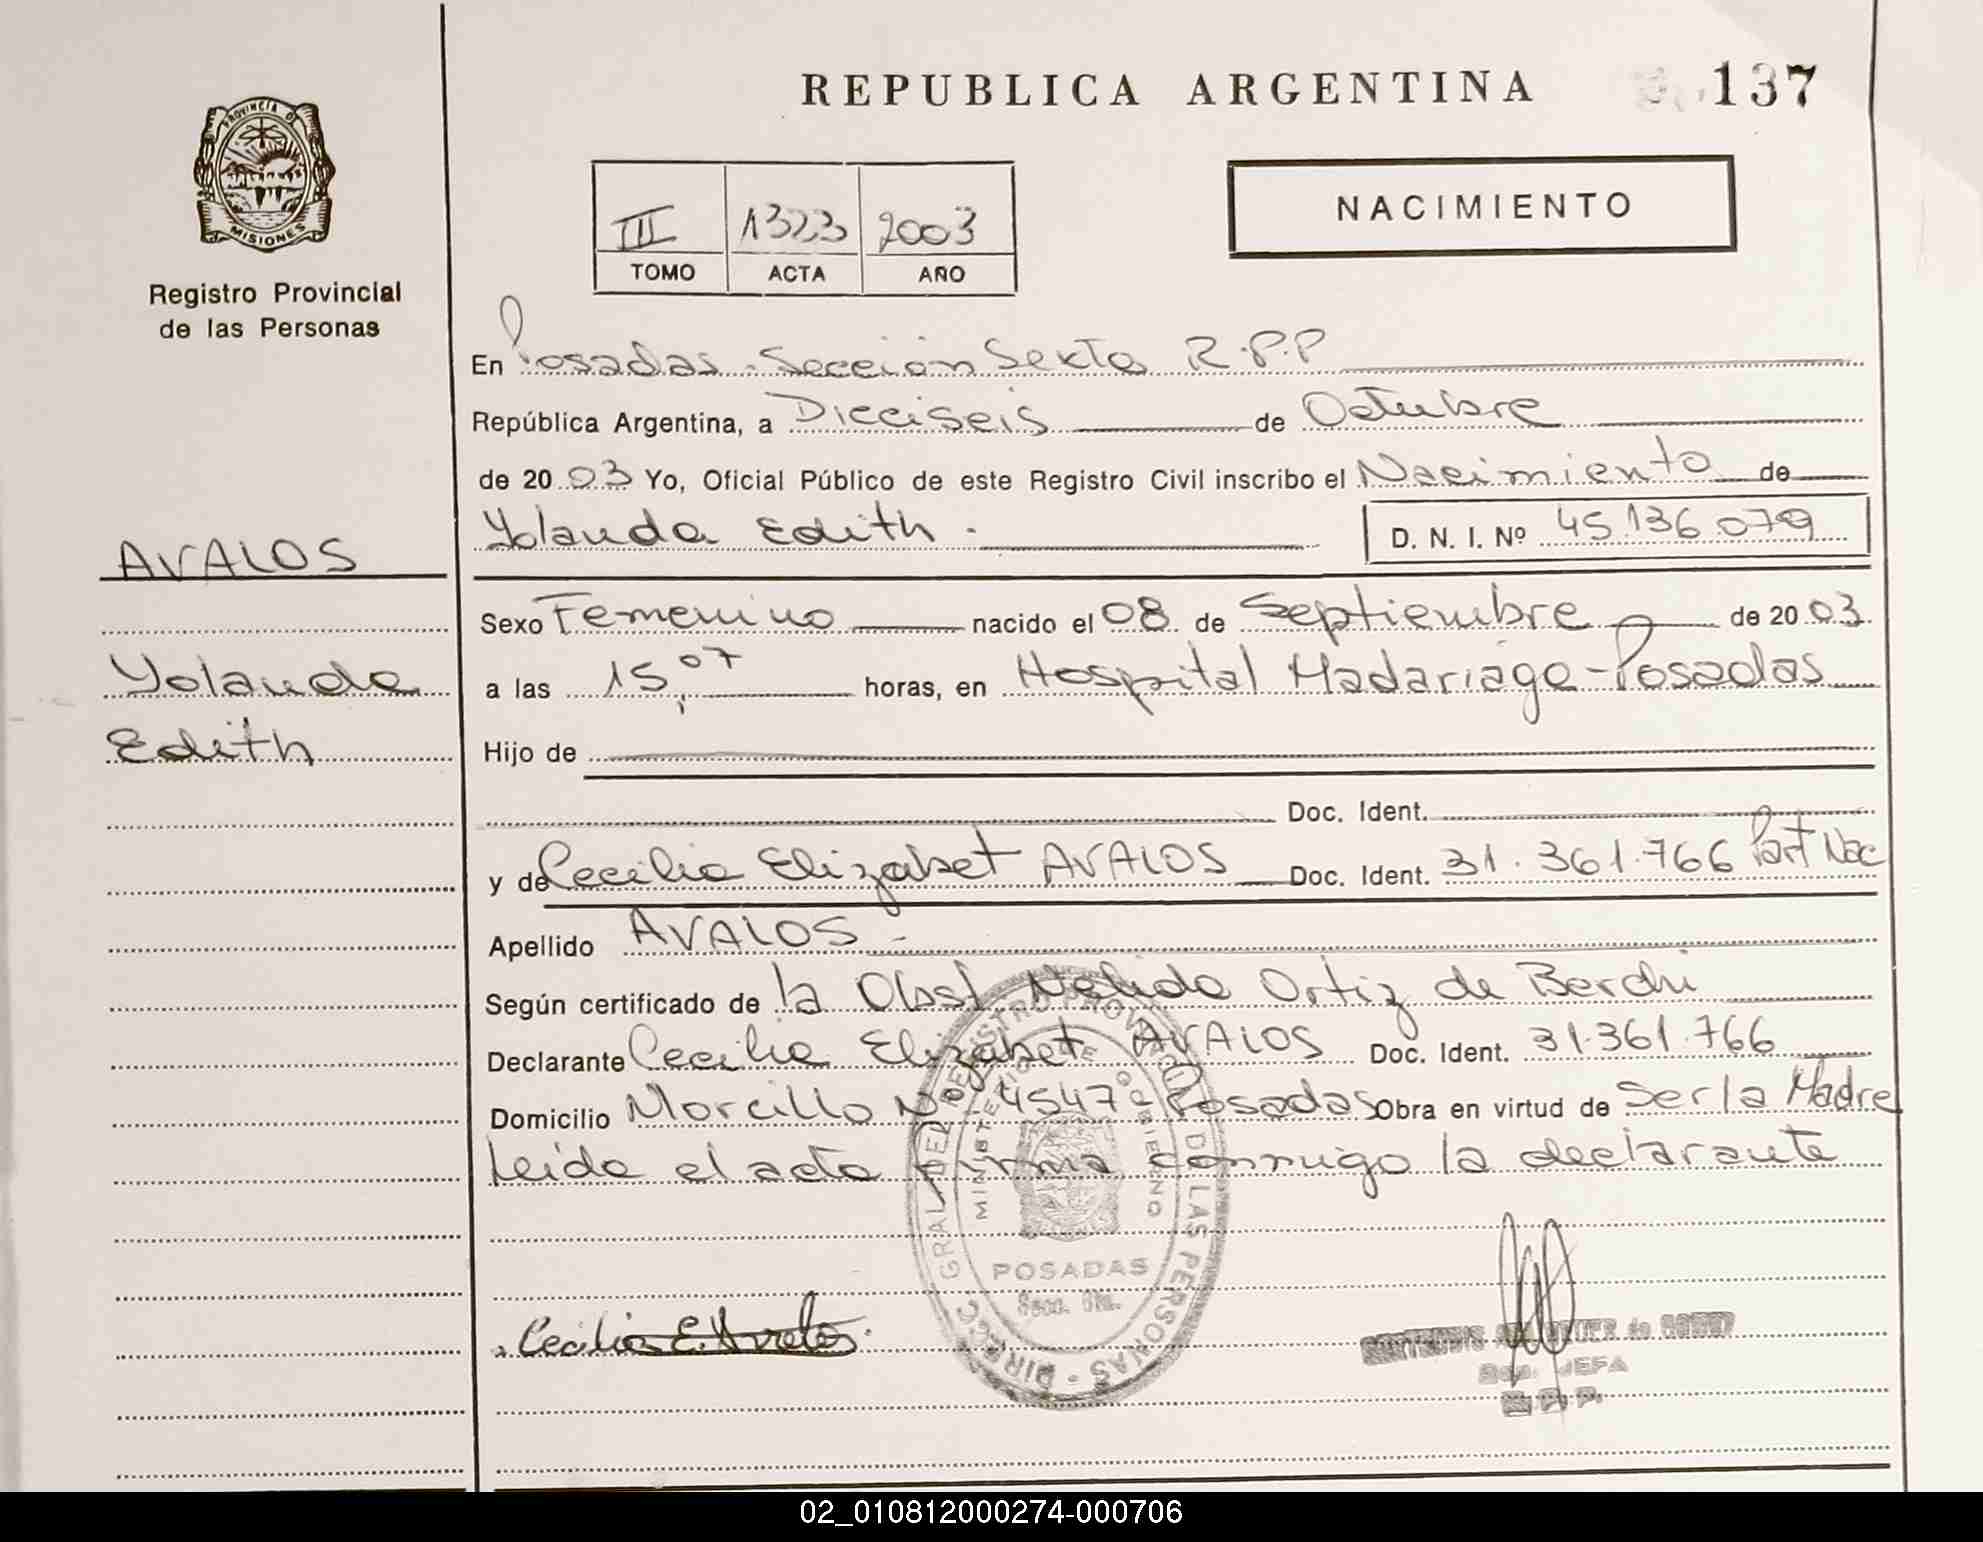 REPUBLICA ARGENTINA 137
PROVINCIA DE
MISIONES
Registro Provincial
de las Personas
III 1323 2003
TOMO ACTA AÑO
NACIMIENTO
En Posadas - Sección Sexta R.P.P
República Argentina, a Dieciseis de Octubre
de 20 03 Yo, Oficial Público de este Registro Civil inscribo el Nacimiento de
Yolanda Edith.
D. N. I. Nº 45.136.079
AVALOS
Yolanda
Edith
Sexo Femenino nacido el 08 de Septiembre de 20 03.
a las 15,07 horas, en Hospital Madariaga - Posadas
Hijo de
Doc. Ident.
y de Cecilia Elizabet AVALOS Doc. Ident. 31.361.766 Part Nac
Apellido AVALOS -
Según certificado de la Obst Nelida Ortiz de Berchi
Declarante Cecilia Elizabet AVALOS Doc. Ident. 31.361.766
Domicilio Morcillo Nº 4547 Posadas Obra en virtud de Ser la Madre
Leida el acta firma conmigo la declarante
DIRECC. GRAL. DEL REGISTRO PROVINCIAL DE LAS PERSONAS
MINISTERIO DE GOBIERNO
POSADAS
Secc. 6ta.
Cecilia E. Avalos.
JEFA
R. P. P.
02_010812000274-000706